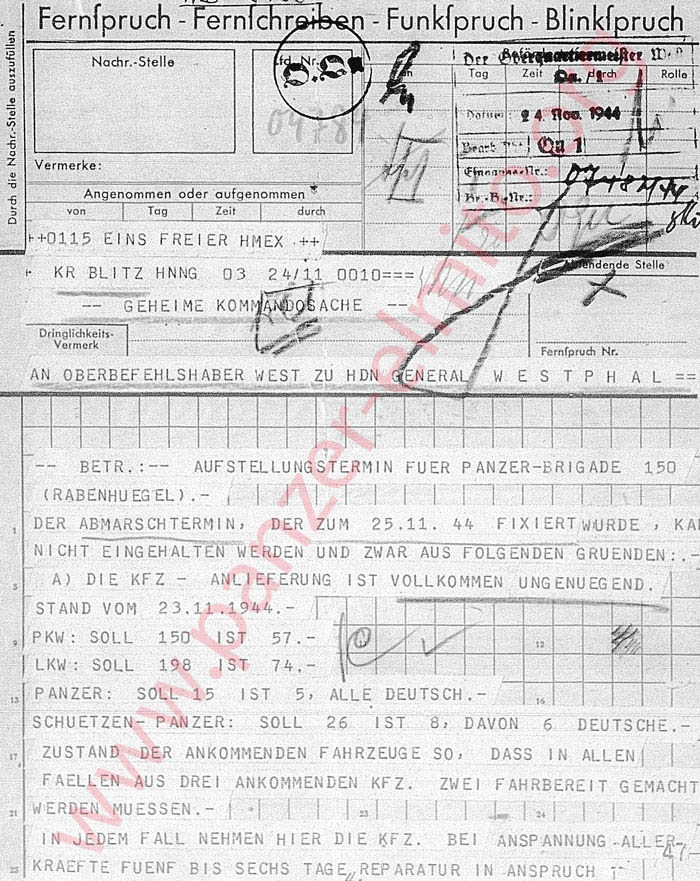 Fernſpruch - Fernſchreiben - Funkſpruch - Blinkſpruch
Durch die Nachr.-Stelle auszufüllen
Nachr.-Stelle
Lfd. Nr.
Der Oberquartiermeister
Tag Zeit durch Rolle
Qu. 1
Datum: 24. Nov. 1944
Qu 1
Vermerke:
Angenommen oder aufgenommen
von Tag Zeit durch
++0115 EINS FREIER HMEX ++
+ KR BLITZ HNNG 03 24/11 0010===
Absendende Stelle
-- GEHEIME KOMMANDOSACHE --
Dringlichkeits-
Vermerk
Fernſpruch Nr.
AN OBERBEFEHLSHABER WEST ZU HDN GENERAL W E S T P H A L ==
-- BETR.:-- AUFSTELLUNGSTERMIN FUER PANZER-BRIGADE 150
(RABENHUEGEL).-
1 DER ABMARSCHTERMIN, DER ZUM 25.11. 44 FIXIERT WURDE , KA
NICHT EINGEHALTEN WERDEN UND ZWAR AUS FOLGENDEN GRUENDEN:.-
5 A) DIE KFZ - ANLIEFERUNG IST VOLLKOMMEN UNGENUEGEND.
STAND VOM 23.11.1944.-
9 PKW: SOLL 150 IST 57.- 12
LKW: SOLL 198 IST 74.-
13 PANZER: SOLL 15 IST 5, ALLE DEUTSCH.- 16
SCHUETZEN- PANZER: SOLL 26 IST 8, DAVON 6 DEUTSCHE.-
17 ZUSTAND DER ANKOMMENDEN FAHRZEUGE SO, DASS IN ALLEN
FAELLEN AUS DREI ANKOMMENDEN KFZ. ZWEI FAHRBEREIT GEMACHT
21 WERDEN MUESSEN.- 23 24
IN JEDEM FALL NEHMEN HIER DIE KFZ. BEI ANSPANNUNG ALLER-
25 KRAEFTE FUENF BIS SECHS TAGE REPARATUR IN ANSPRUCH -
www.panzer-elmito.org